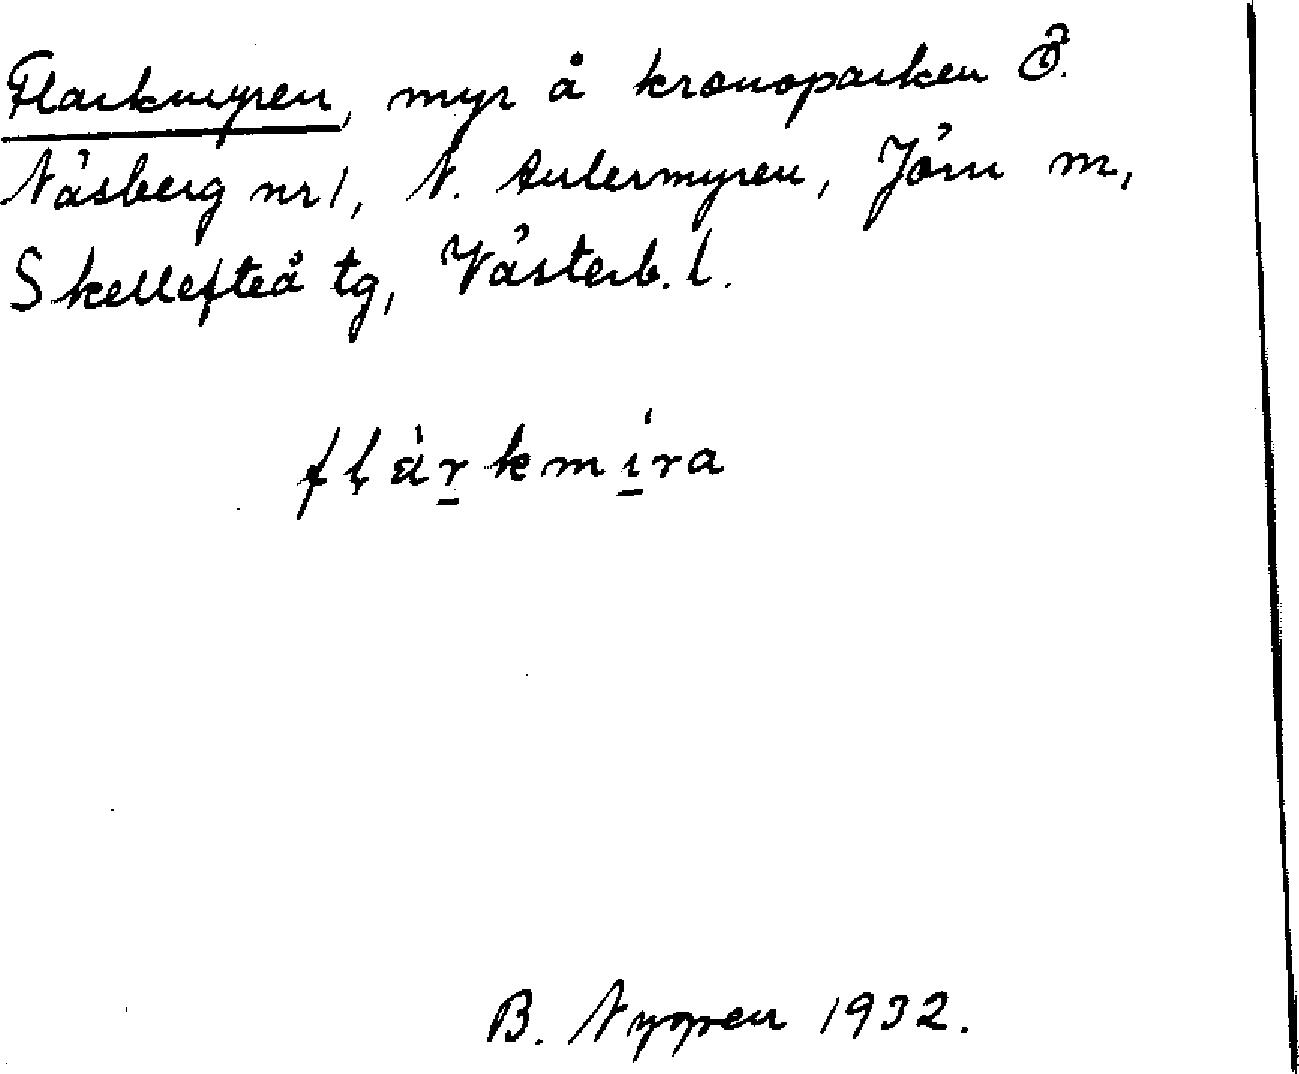 Flarkmyren, myr å kronoparken Ö.
Näsberg nr 1, N. Aulermyren, Jörn m,
Skellefteå tg, Västerb. l.
flàrkmíra
B. Nygren 1932.